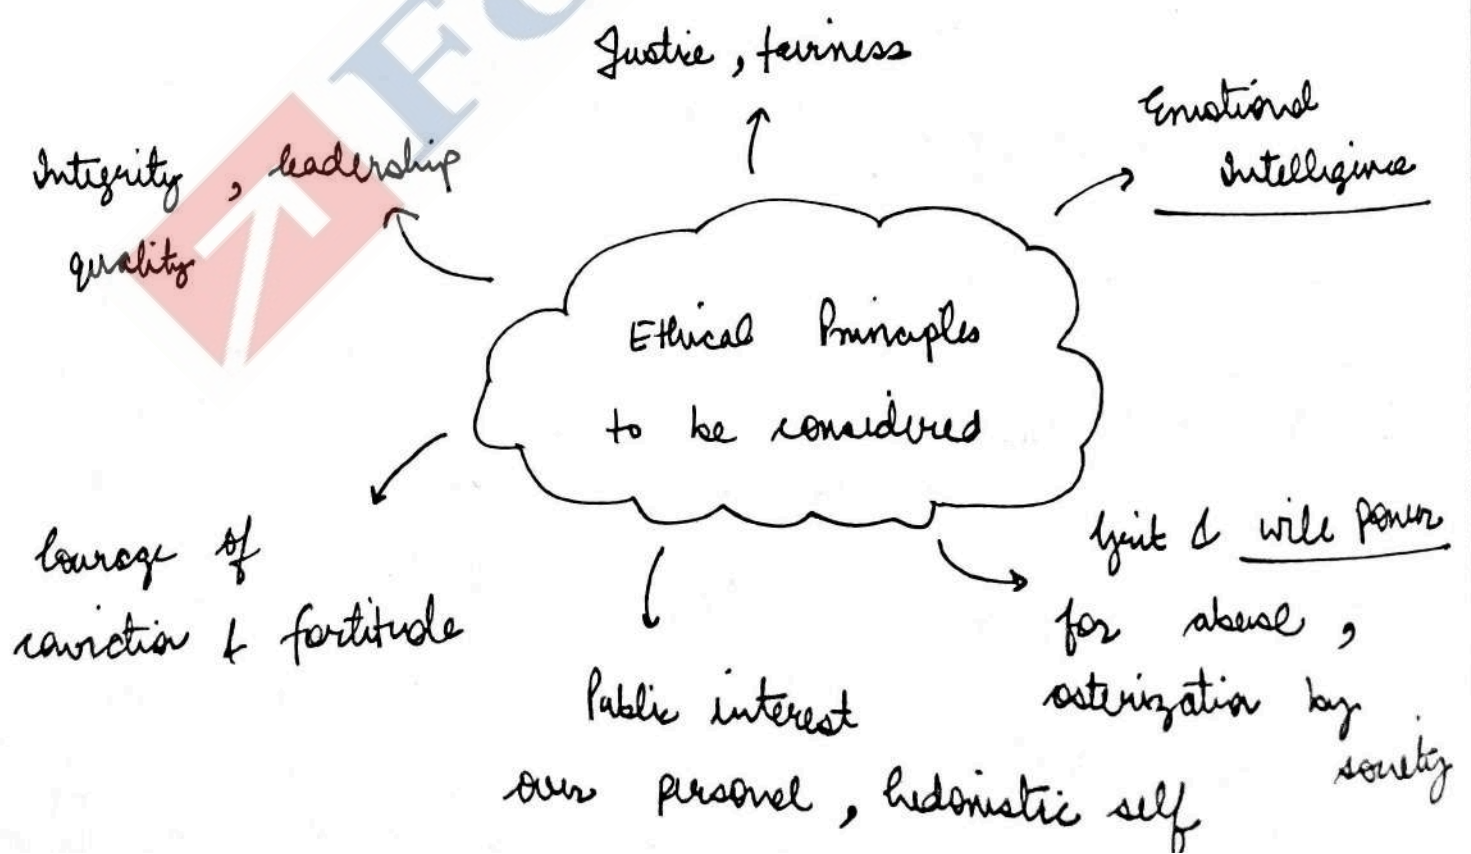 Justice, fairness
Emotional
Intelligence
Integrity, leadership
quality
Ethical Principles
to be considered
Courage of
conviction & fortitude
Grit & will power
for abuse,
osterization by
society
Public interest
over personal, hedonistic self